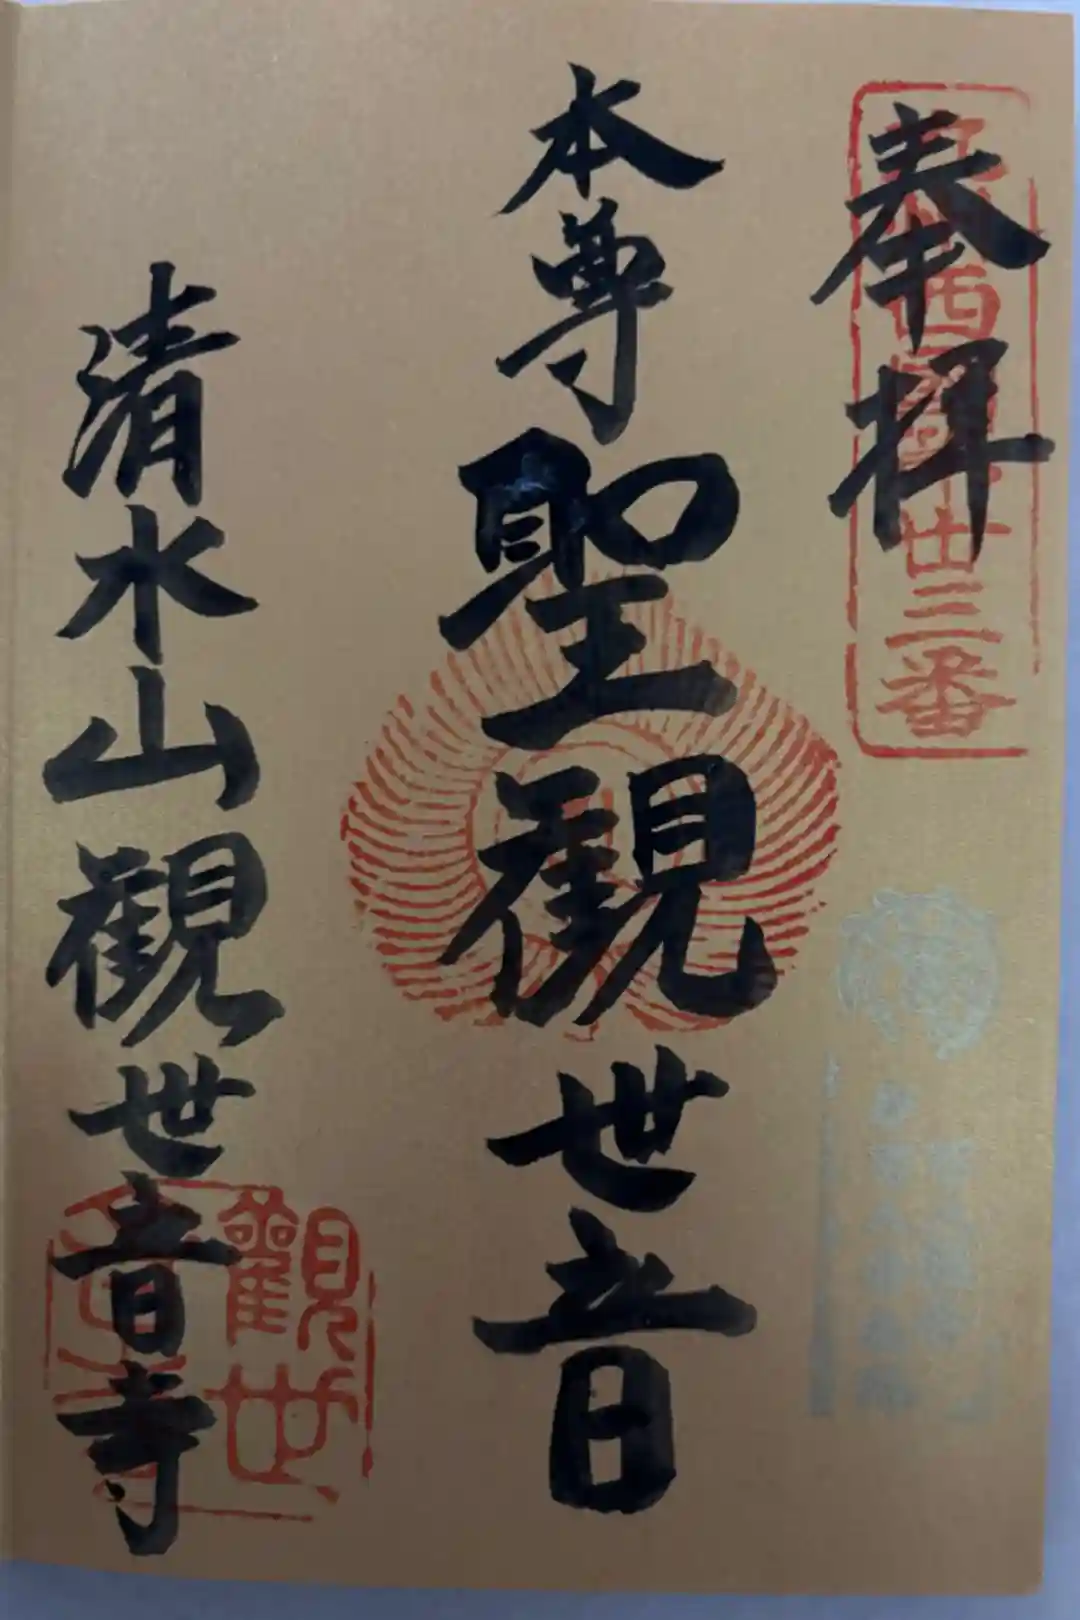 奉拝
本尊聖観世音
清水山観世音寺
西國
廿三番
觀世音寺